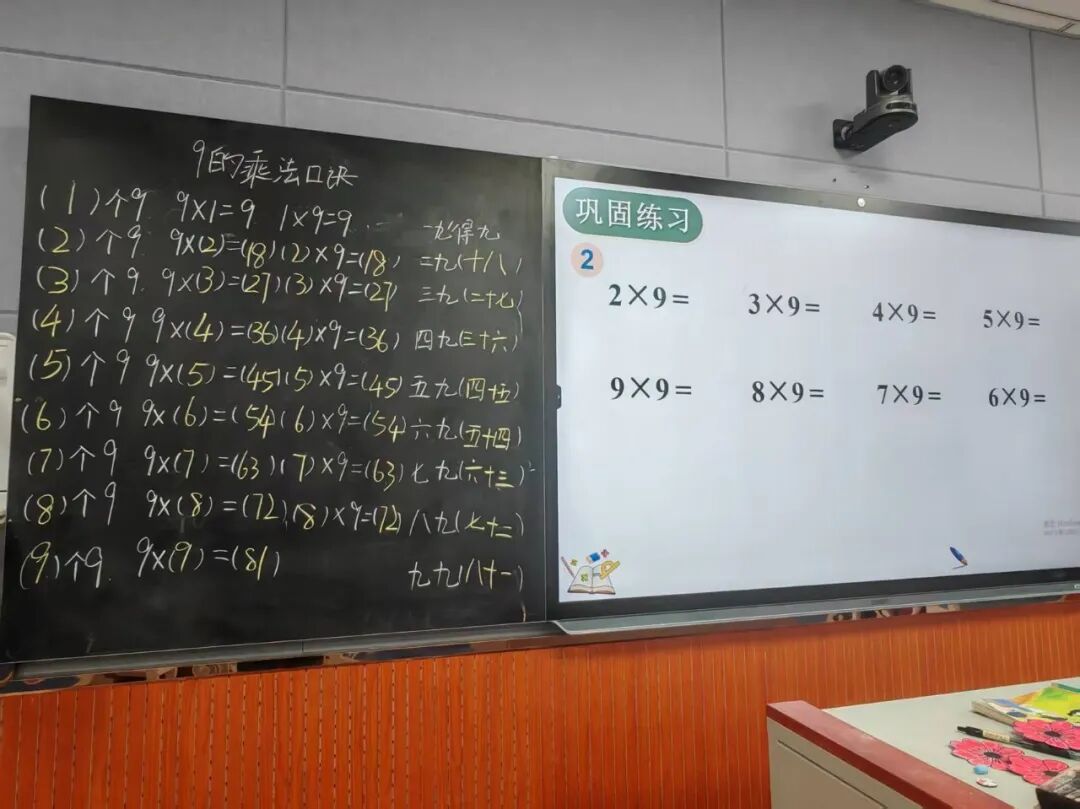 9的乘法口诀
(1)个9 9×1=9 1×9=9 一九得九
(2)个9 9×(2)=(18)(2)×9=(18) 二九(十八)
(3)个9 9×(3)=(27)(3)×9=(27) 三九(二十七)
(4)个9 9×(4)=(36)(4)×9=(36) 四九(三十六)
(5)个9 9×(5)=(45)(5)×9=(45) 五九(四十五)
(6)个9 9×(6)=(54)(6)×9=(54) 六九(五十四)
(7)个9 9×(7)=(63)(7)×9=(63) 七九(六十三)
(8)个9 9×(8)=(72)(8)×9=(72) 八九(七十二)
(9)个9 9×(9)=(81) 九九(八十一)
巩固练习
2
2×9= 3×9= 4×9= 5×9=
9×9= 8×9= 7×9= 6×9=